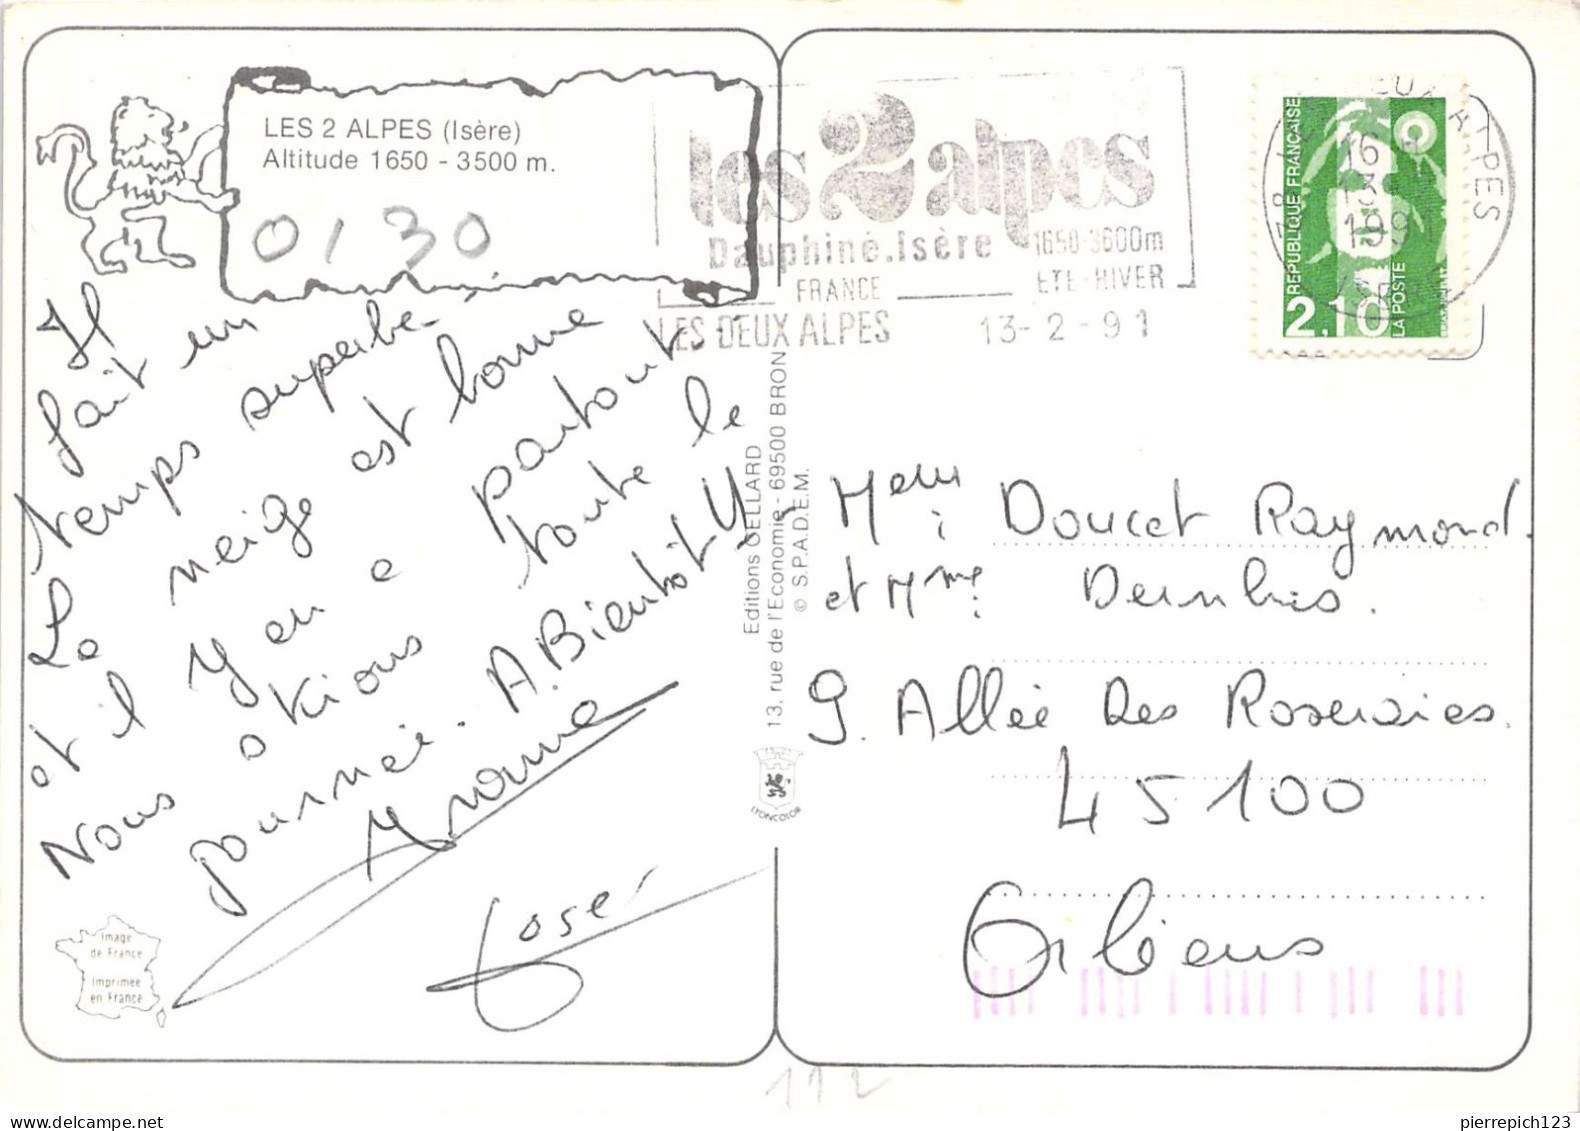 LES 2 ALPES (Isère)
Altitude 1650 - 3500 m.
0130
Il
fait un
temps superbe.
La neige est bonne
et il y en a partout.
Nous skions toute le
journée. A Bientôt
José
Image
de France
imprimée
en France
Editions CELLARD
13, rue de l'Economie - 69500 BRON
© S.P.A.D.E.M.
LYONCOLOR
les 2 alpes
Dauphiné.Isère
1650-3600m
FRANCE
ETE-HIVER
LES DEUX ALPES
13-2-91
REPUBLIQUE FRANÇAISE
2,10
LA POSTE
16 H
1991
ISERE
Doucet Raymond.
et Mme
9. Allée Des Roseraies.
45100
Orléans
112
pierrepich123